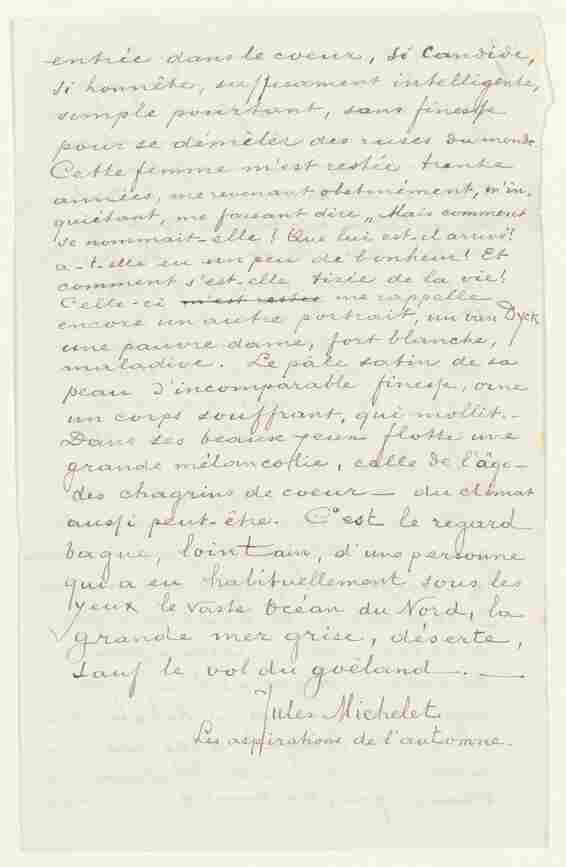 entrée dans le coeur, si candide,
si honnête, suffisament intelligente,
simple pourtant, sans finesse
pour se démêler des ruses du monde.
Cette femme m'est restée trente
années, me revenant obstinément, m'in-
quiétant, me faisant dire „Mais comment
se nommait-elle! Que lui est-il arrivé!
a-t-elle eu un peu de bonheur! Et
comment s'est-elle tirée de la vie!
Celle-ci m'est restée me rappelle
encore un autre portrait, un van Dyck
une pauvre dame, fort blanche,
maladive. Le pâle satin de sa
peau d'incomparable finesse, orne
un corps souffrant, qui mollit.-
Dans ses beaux yeux flotte une
grande mélancolie, celle de l'âge-
des chagrins de coeur — du climat
aussi peut-être. C'est le regard
vague, lointain, d'une personne
qui a eu habituellement sous les
yeux le vaste Océan du Nord, la
grande mer grise, déserte,
sauf le vol du goëland. —
Jules Michelet
Les aspirations de l'automne.